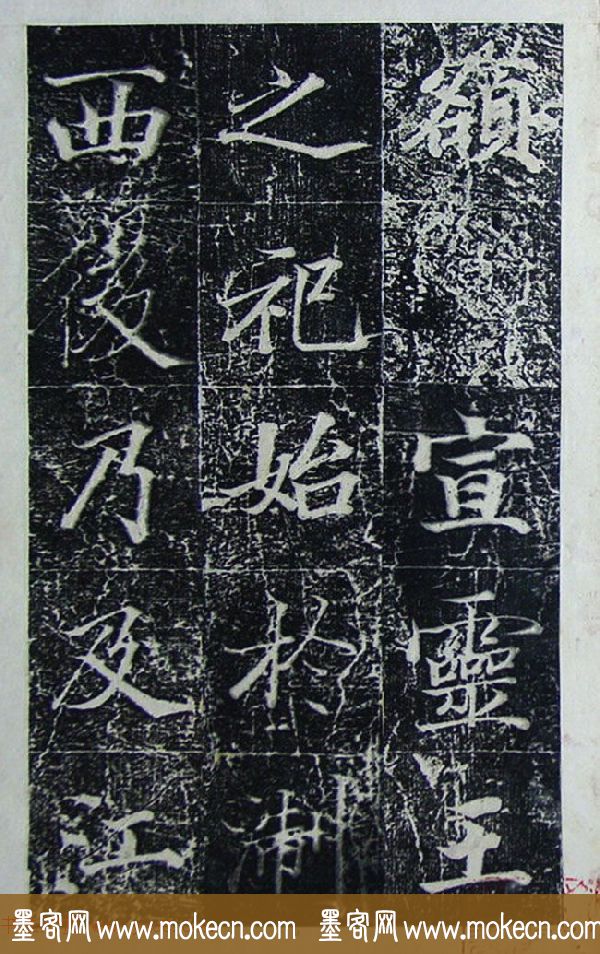 額宣靈王
之祀始於淛
西後乃及江
墨客网 www.mokecn.com 墨客网 www.mokecn.com